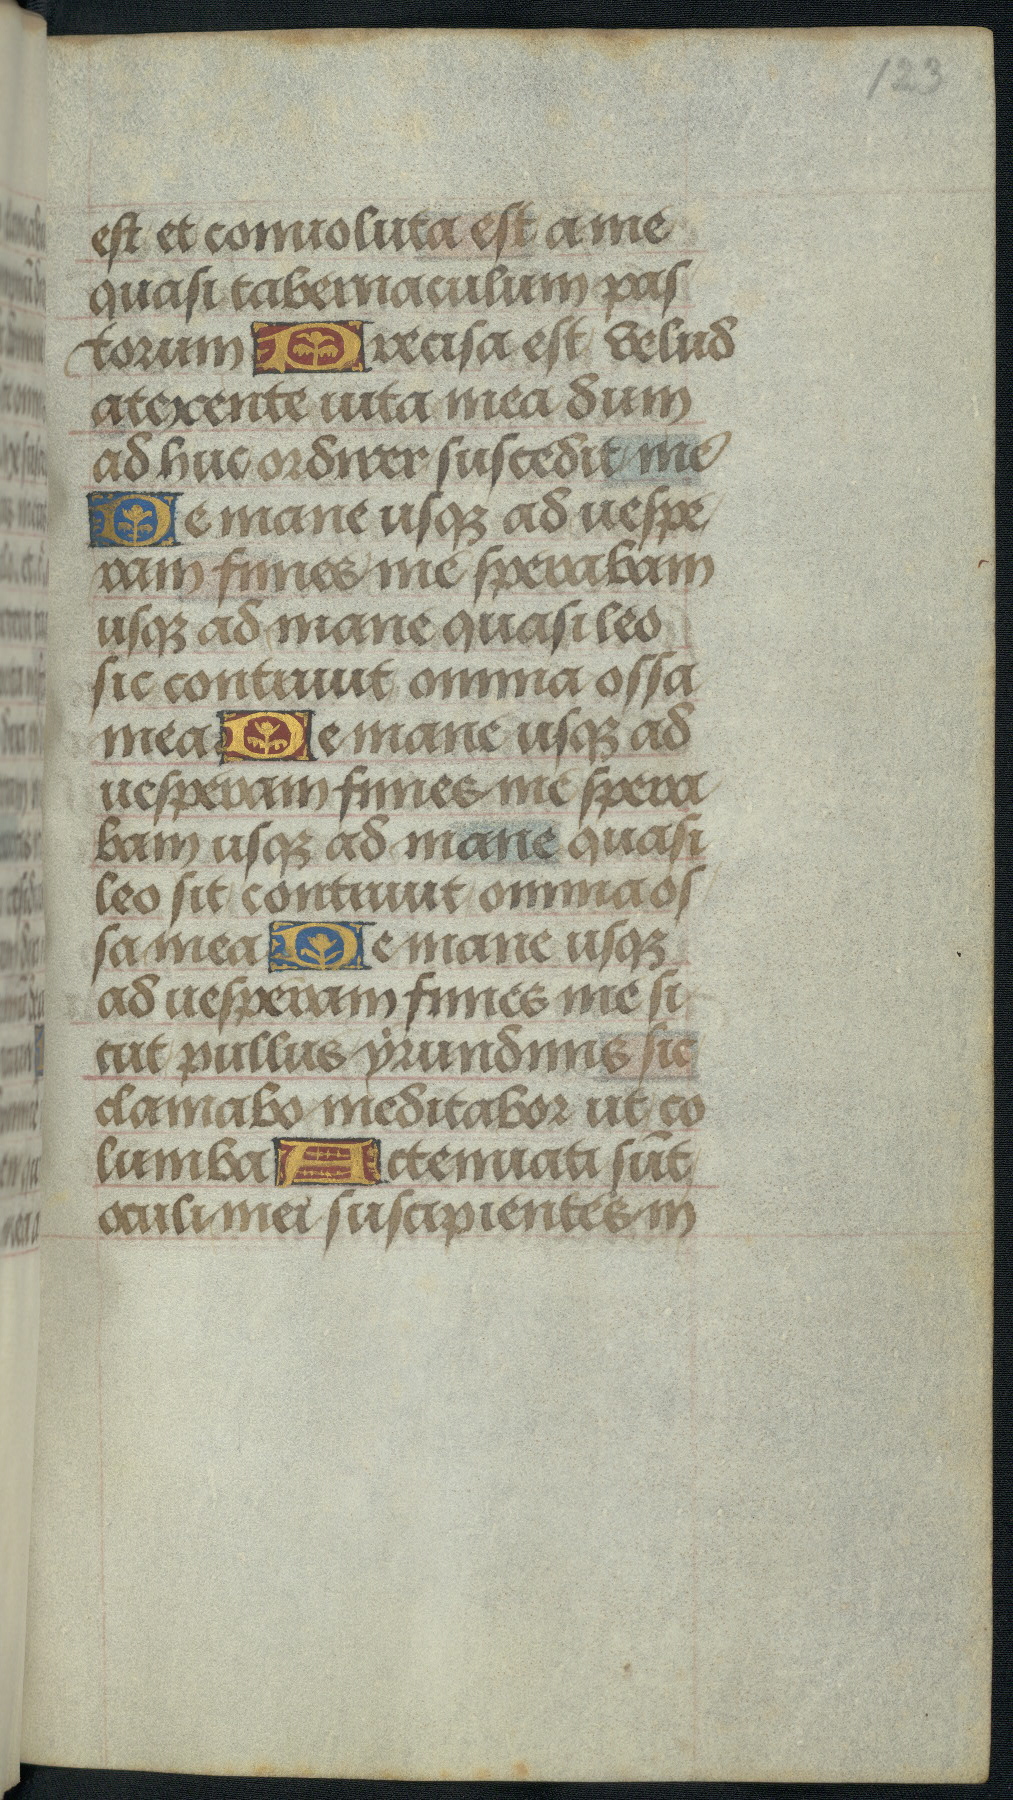 123
est et conuoluta est a me
quasi tabernaculum pas
torum Precisa est velud
atexente uita mea dum
ad huc ordirer suscedit me
De mane usqz ad uespe
ram finies me sperabam
usqz ad mane quasi leo
sic contriuit omnia ossa
mea De mane usqz ad
uesperam finies me spera
bam usqz ad mane quasi
leo sit contriuit omnia os
sa mea De mane usqz
ad uesperam finies me si
cut pullus yrundinis sic
clamabo meditabor ut co
lumba Actenuati sūt
oculi mei suscipientes in